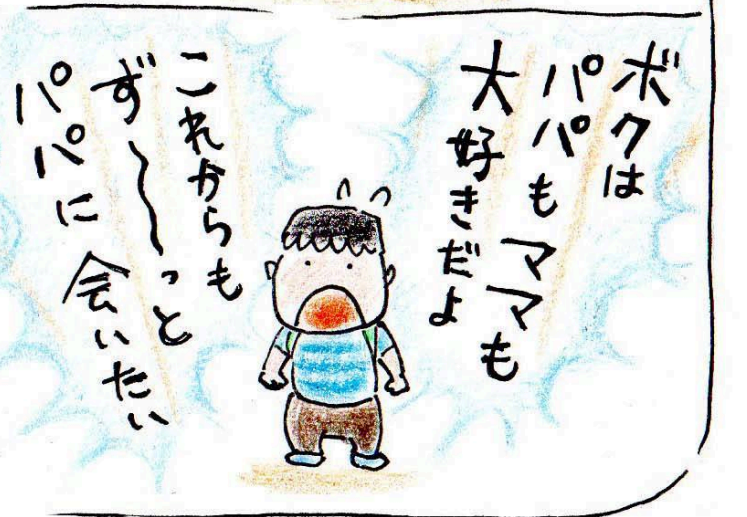 ボクは
パパもママも
大好きだよ
これからも
ず〜〜っと
パパに会いたい